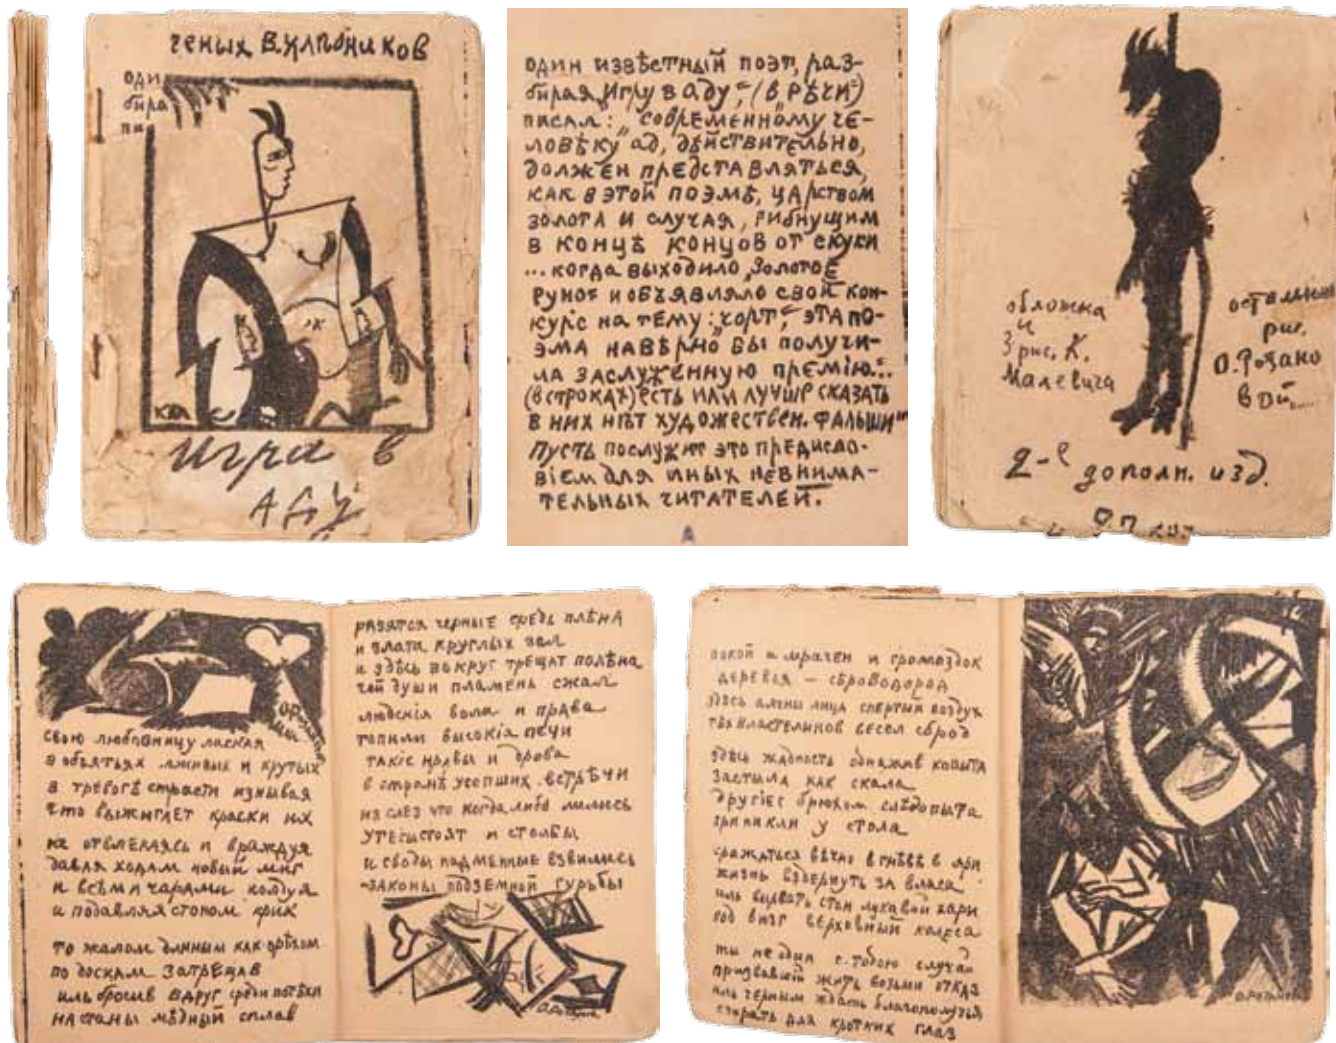 ченых В. Хлѣбников
оди
бира
пи
игра в
аду
один извѣстный поэт, раз-
бирая „Игру в аду“, (в „Рѣчи“)
писал: „современному че-
ловѣку ад, дѣйствительно,
должен представляться,
как в этой поэмѣ, царством
золота и случая, гибнущим
в концѣ концов от скуки
... когда выходило „Золотое
руно“ и объявляло свой кон-
курс на тему: „чорт“, эта по-
эма навѣрно бы получи-
ла заслуженную премію“...
(в строках) есть или лучше сказать
в них нѣт художествен. фальши“
Пусть послужит это предисло-
віем для иных невнима-
тельных читателей.
обложка
и
3 рис. К.
Малевича
остальные
рис.
О. Розано
вой....
2-е дополн. изд.
свою любовницу лаская
в объятьях лживых и крутых
в тревогѣ страсти изнывая
что выжигает краски их
не отвлекаясь и враждуя
давая ходам новый миг
и всѣми чарами колдуя
и подавляя стоном крик
то жалом длинным как орѣхом
по доскам затрещав
иль бросив вдруг среди потѣхи
на станы мѣдный сплав
разятся черные средь плѣна
и злата круглых зал
и здѣсь вокруг трещат полѣна
чей души пламень сжал
людскія воли и права
топили высокія печи
такіе нравы и дрова
в странѣ усопших встрѣчи
из слез что когда либо лились
утесы стоят и столбы
и своды надменные взвились
законы подземной гурьбы
О. Розанова
покой и мрачен и громоздок
деревья — сброводород
здѣсь алчны лица спертый воздух
тѣх властелинов весел сброд
здѣсь жадность обнажив копыта
застыла как скала
другіе с брюхом слѣдопыта
приникли у стола
сражаться вѣчно в гнѣвѣ в яри
жизнь вздернуть за власа
иль вырвать стон лукавой хари
под визг верховный колеса
ты не один с тобою случай
призвавшій жить возьми отказ
иль черным ждать благополучья
сгорать для кротких глаз
О. Розанова